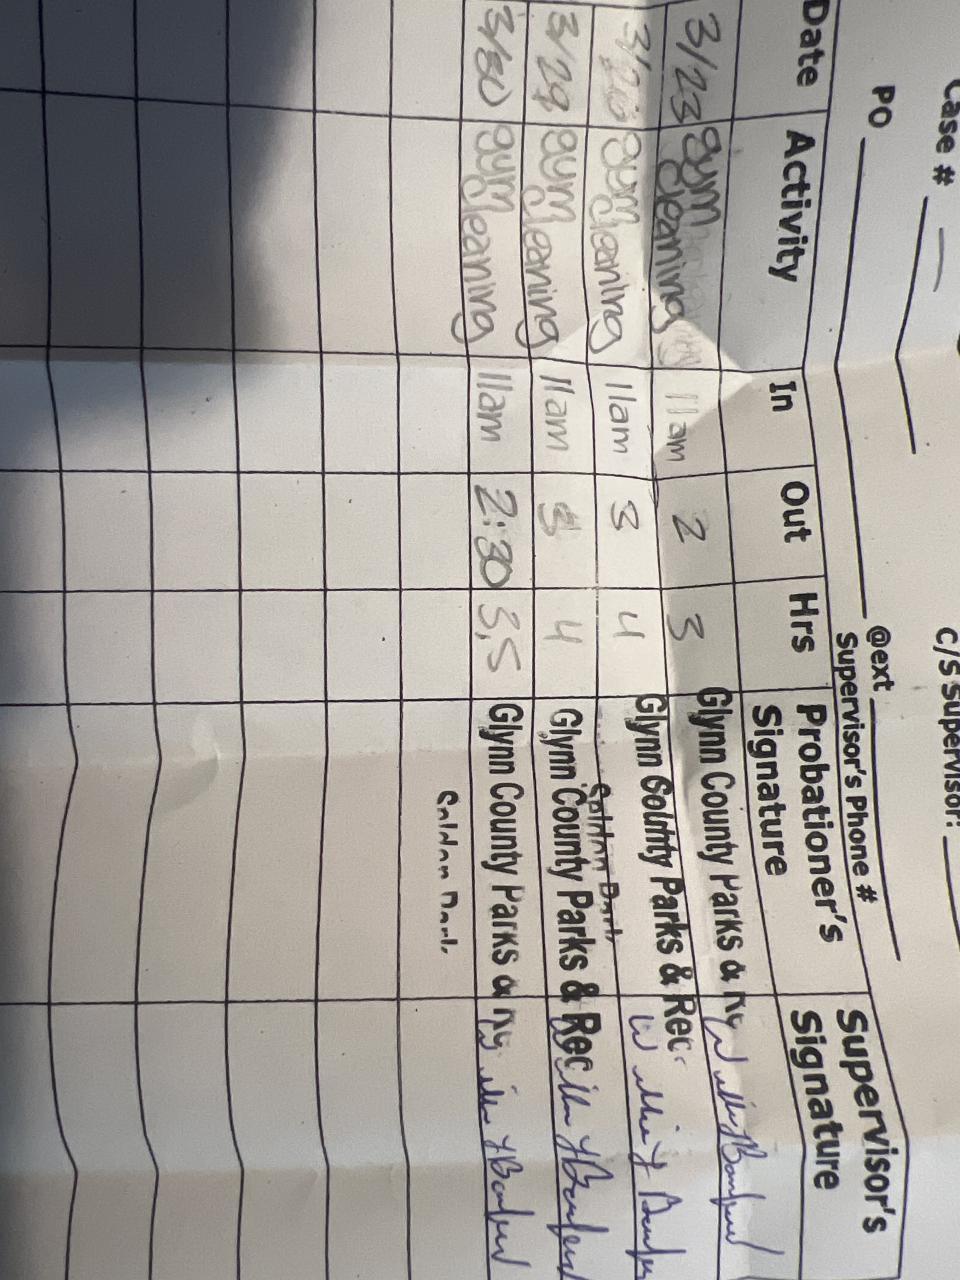 Case #
C/S Supervisor:
PO @ext
Supervisor's Phone #
Date Activity In Out Hrs Probationer's Signature Supervisor's Signature
3/23 gym cleaning 11am 2 3 Glynn County Parks &
3/26 gym cleaning 11am 3 4 Glynn County Parks & Rec.
3/29 gym cleaning 11am 3 4 Glynn County Parks & Rec
3/30 gym cleaning 11am 2:30 3,5 Glynn County Parks &